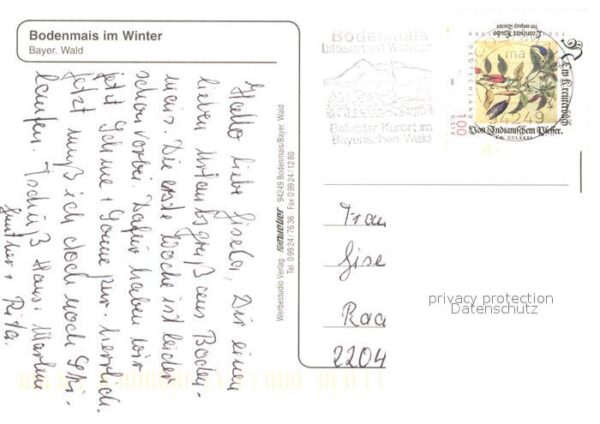 Bodenmais im Winter
Bayer. Wald
Hallo liebe Gisela, Dir einen
lieben Urlaubsgruß aus Boden-
mais. Die erste Woche ist leider
schon vorbei. Dafür haben wir
jetzt Schnee + Sonne pur. Herrlich.
Jetzt muß ich doch noch Ski-
laufen. Tschüß Hans + Marlene
Günther + Rita.
Werbestudio Verlag 94249 Bodenmais/Bayer. Wald
Tel. 0 99 24 / 76 36 · Fax 0 99 24 / 12 80
Bodenmais
Beliebter Kurort im
Bayerischen Wald
94249
DEUTSCHLAND
100
Von Indianischem Pfeffer.
Frau
Gise
Raa
2204
privacy protection
Datenschutz